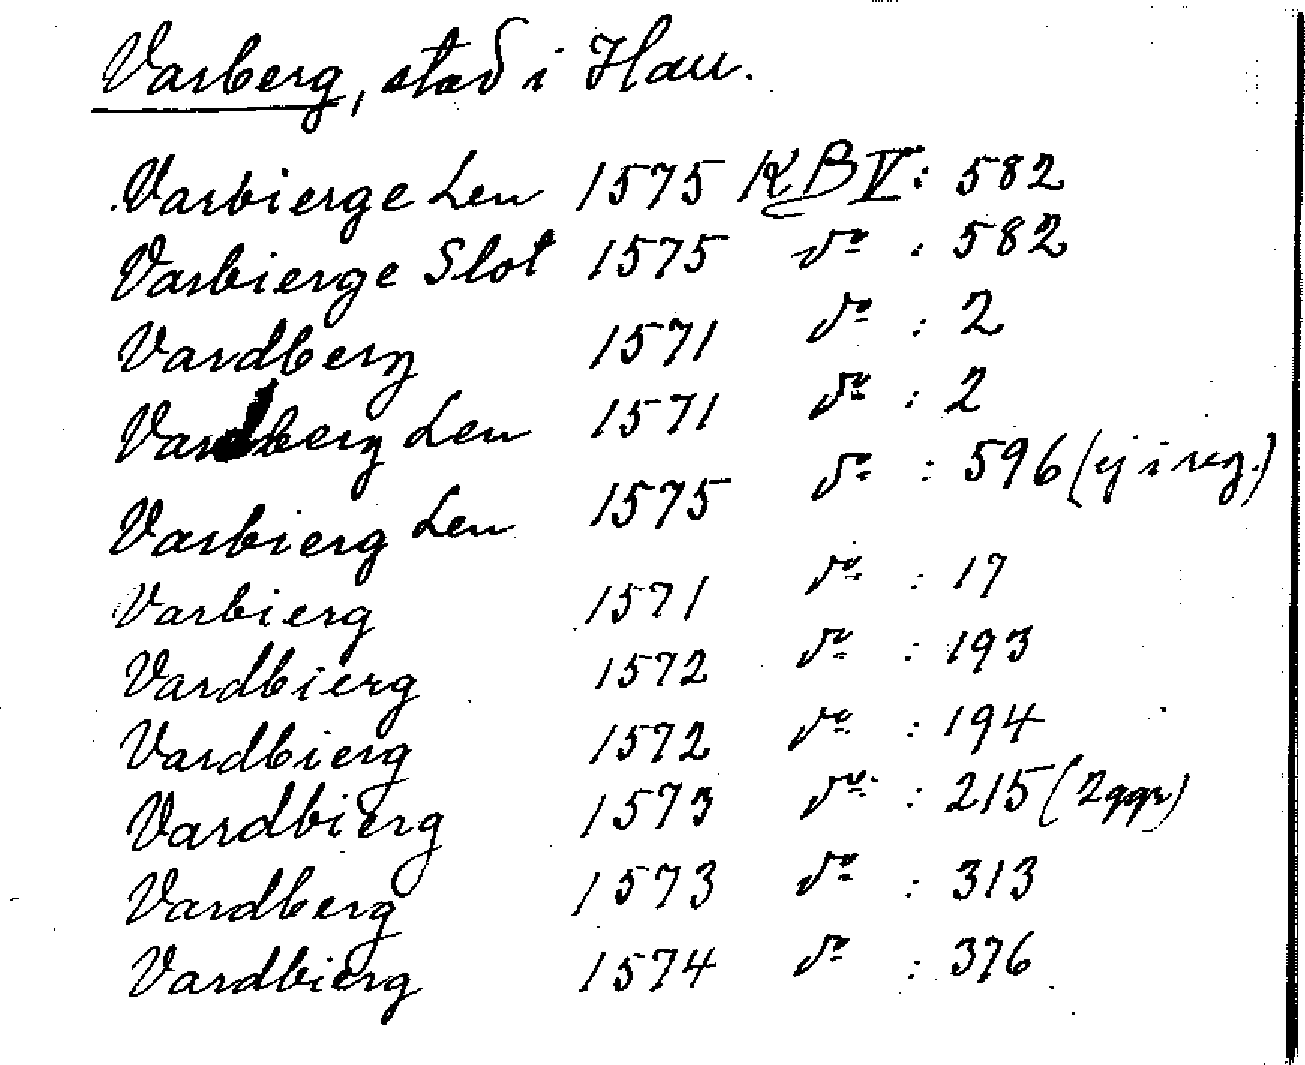 Varberg, stad i Hall.
Varbierge Len 1575 KB V: 582
Varbierge Slot 1575 do : 582
Vardberg 1571 do : 2
Vardberg Len 1571 do : 2
Varbierg Len 1575 do : 596 (ej i reg.)
Varbierg 1571 do : 17
Vardbierg 1572 do : 193
Vardbierg 1572 do : 194
Vardbierg 1573 do : 215 (2 ggr)
Vardberg 1573 do : 313
Vardbierg 1574 do : 376